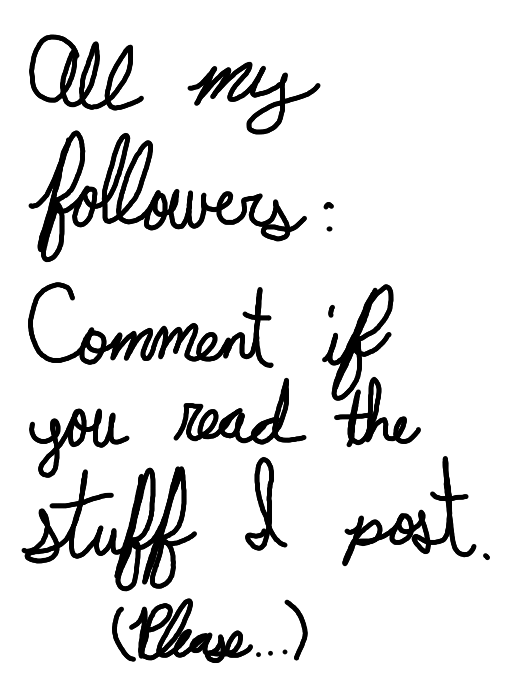 All my
followers:
Comment if
you read the
stuff I post.
(Please...)